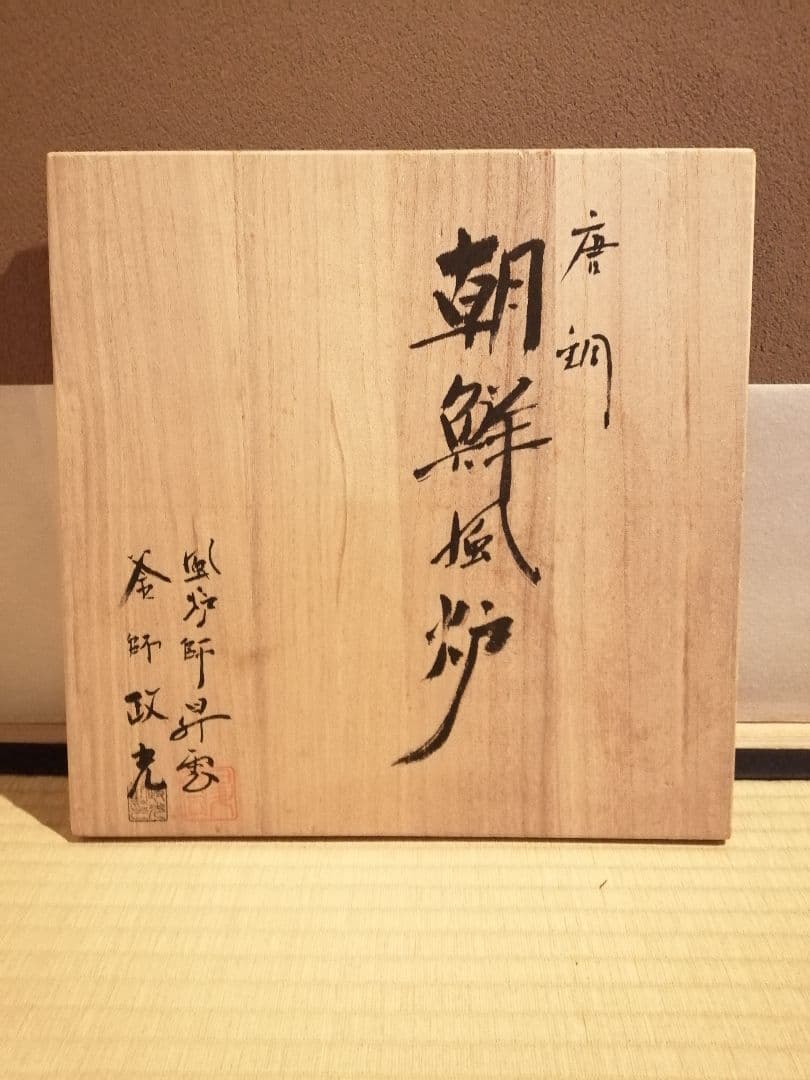 唐銅
朝鮮風炉
風炉師昇雲
釜師政光